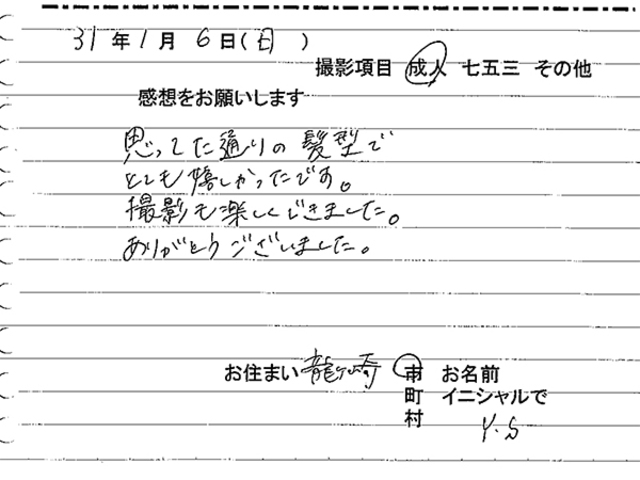 31年1月6日(日)
撮影項目 成人 七五三 その他
感想をお願いします
思ってた通りの髪型で
とても嬉しかったです。
撮影も楽しくできました。
ありがとうございました。
お住まい 龍ヶ崎 市 お名前
町 イニシャルで
村 Y.S